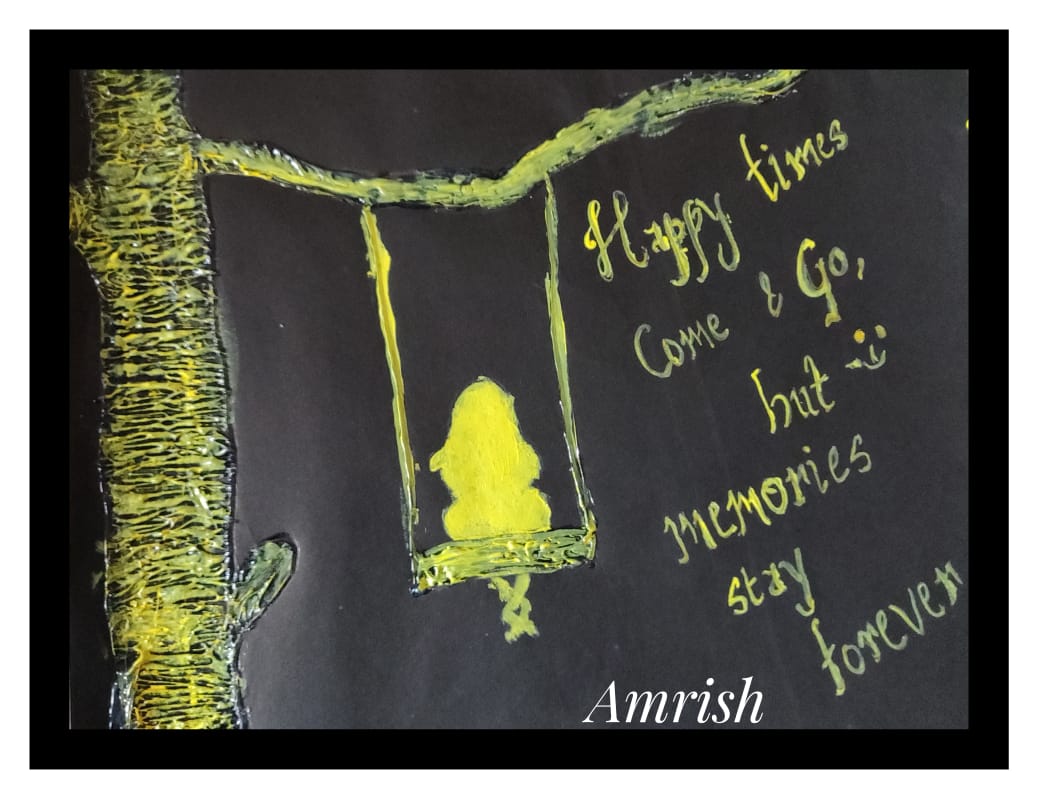 Happy times
Come & Go,
but
memories
stay
forever
Amrish